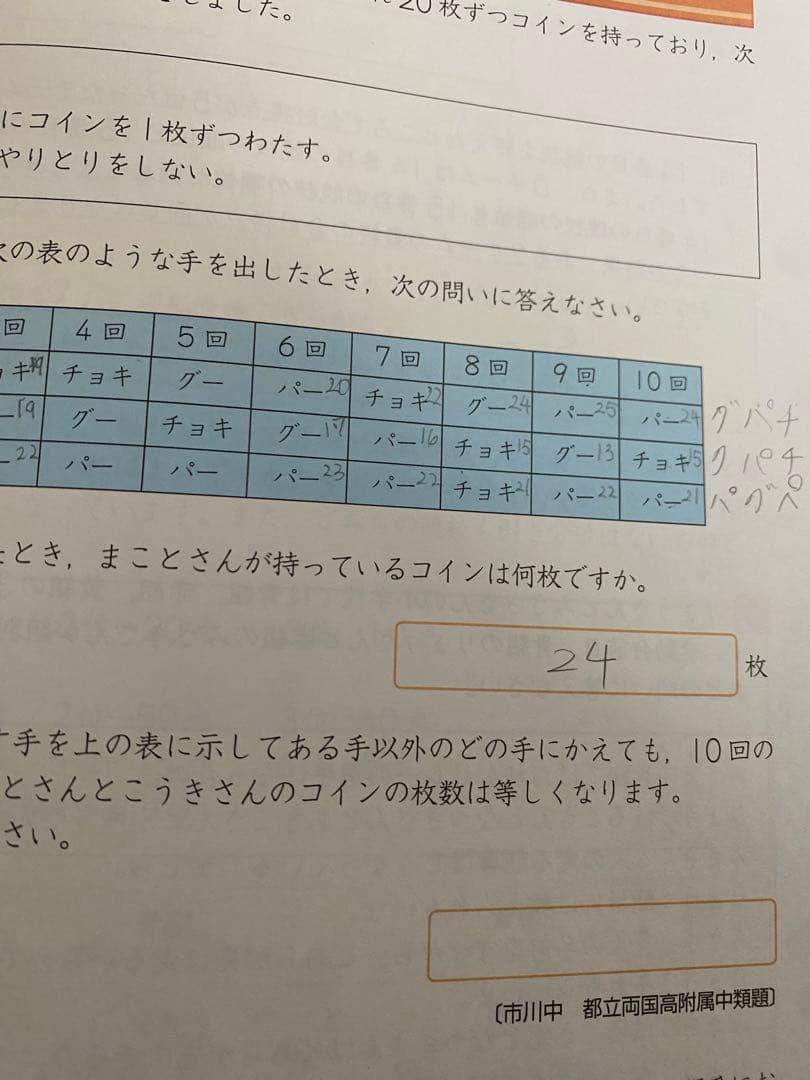 しました。
20枚ずつコインを持っており，次
にコインを1枚ずつわたす。
やりとりをしない。
次の表のような手を出したとき，次の問いに答えなさい。
回 4回 5回 6回 7回 8回 9回 10回
キ チョキ グー パー20 チョキ22 グー24 パー25 パー24 グパチ
ー19 グー チョキ グー17 パー16 チョキ15 グー13 チョキ15 グパチ
ー22 パー パー パー23 パー22 チョキ21 パー22 パー21 パグペ
とき，まことさんが持っているコインは何枚ですか。
24 枚
す手を上の表に示してある手以外のどの手にかえても，10回の
とさんとこうきさんのコインの枚数は等しくなります。
さい。
〔市川中 都立両国高附属中類題〕